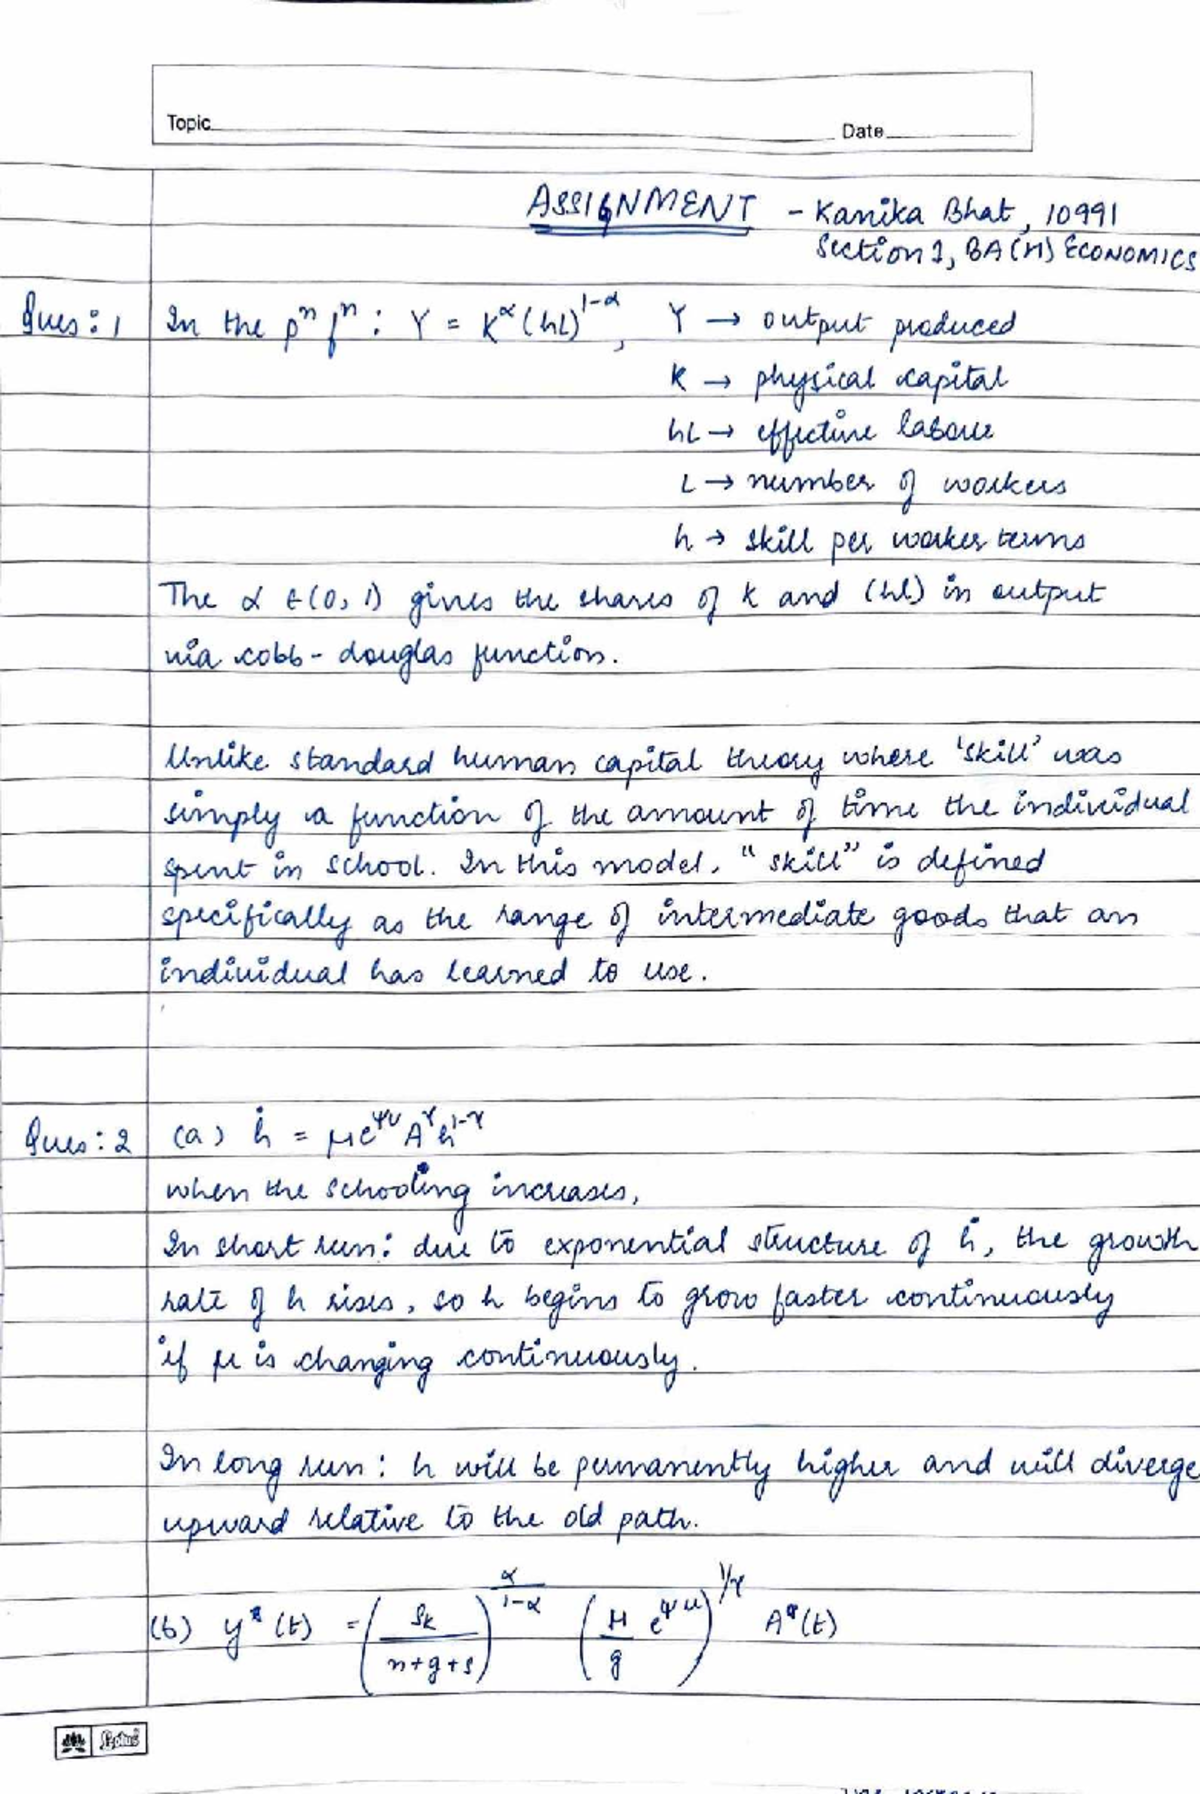 Topic
Date
ASSIGNMENT - Kanika Bhat, 10991
Section 1, BA(H) ECONOMICS
Ques: 1 In the pⁿ fⁿ : Y = K^α (hL)^1-α, Y → output produced
K → physical capital
hL → effective labour
L → number of workers
h → skill per worker terms
The α ∈ (0, 1) gives the shares of K and (hL) in output
via cobb-douglas function.
Unlike standard human capital theory where 'skill' was
simply a function of the amount of time the individual
spent in school. In this model, "skill" is defined
specifically as the range of intermediate goods that an
individual has learned to use.
Ques: 2 (a) ḣ = μe^ψu A^γ h^1-γ
when the schooling increases,
In short run: due to exponential structure of ḣ, the growth
rate of h rises, so h begins to grow faster continuously
if μ is changing continuously.
In long run: h will be permanently higher and will diverge
upward relative to the old path.
(b) y*(t) = (sk / n+g+δ)^α/1-α (μ/g e^ψu)^1/γ A*(t)
Lotus